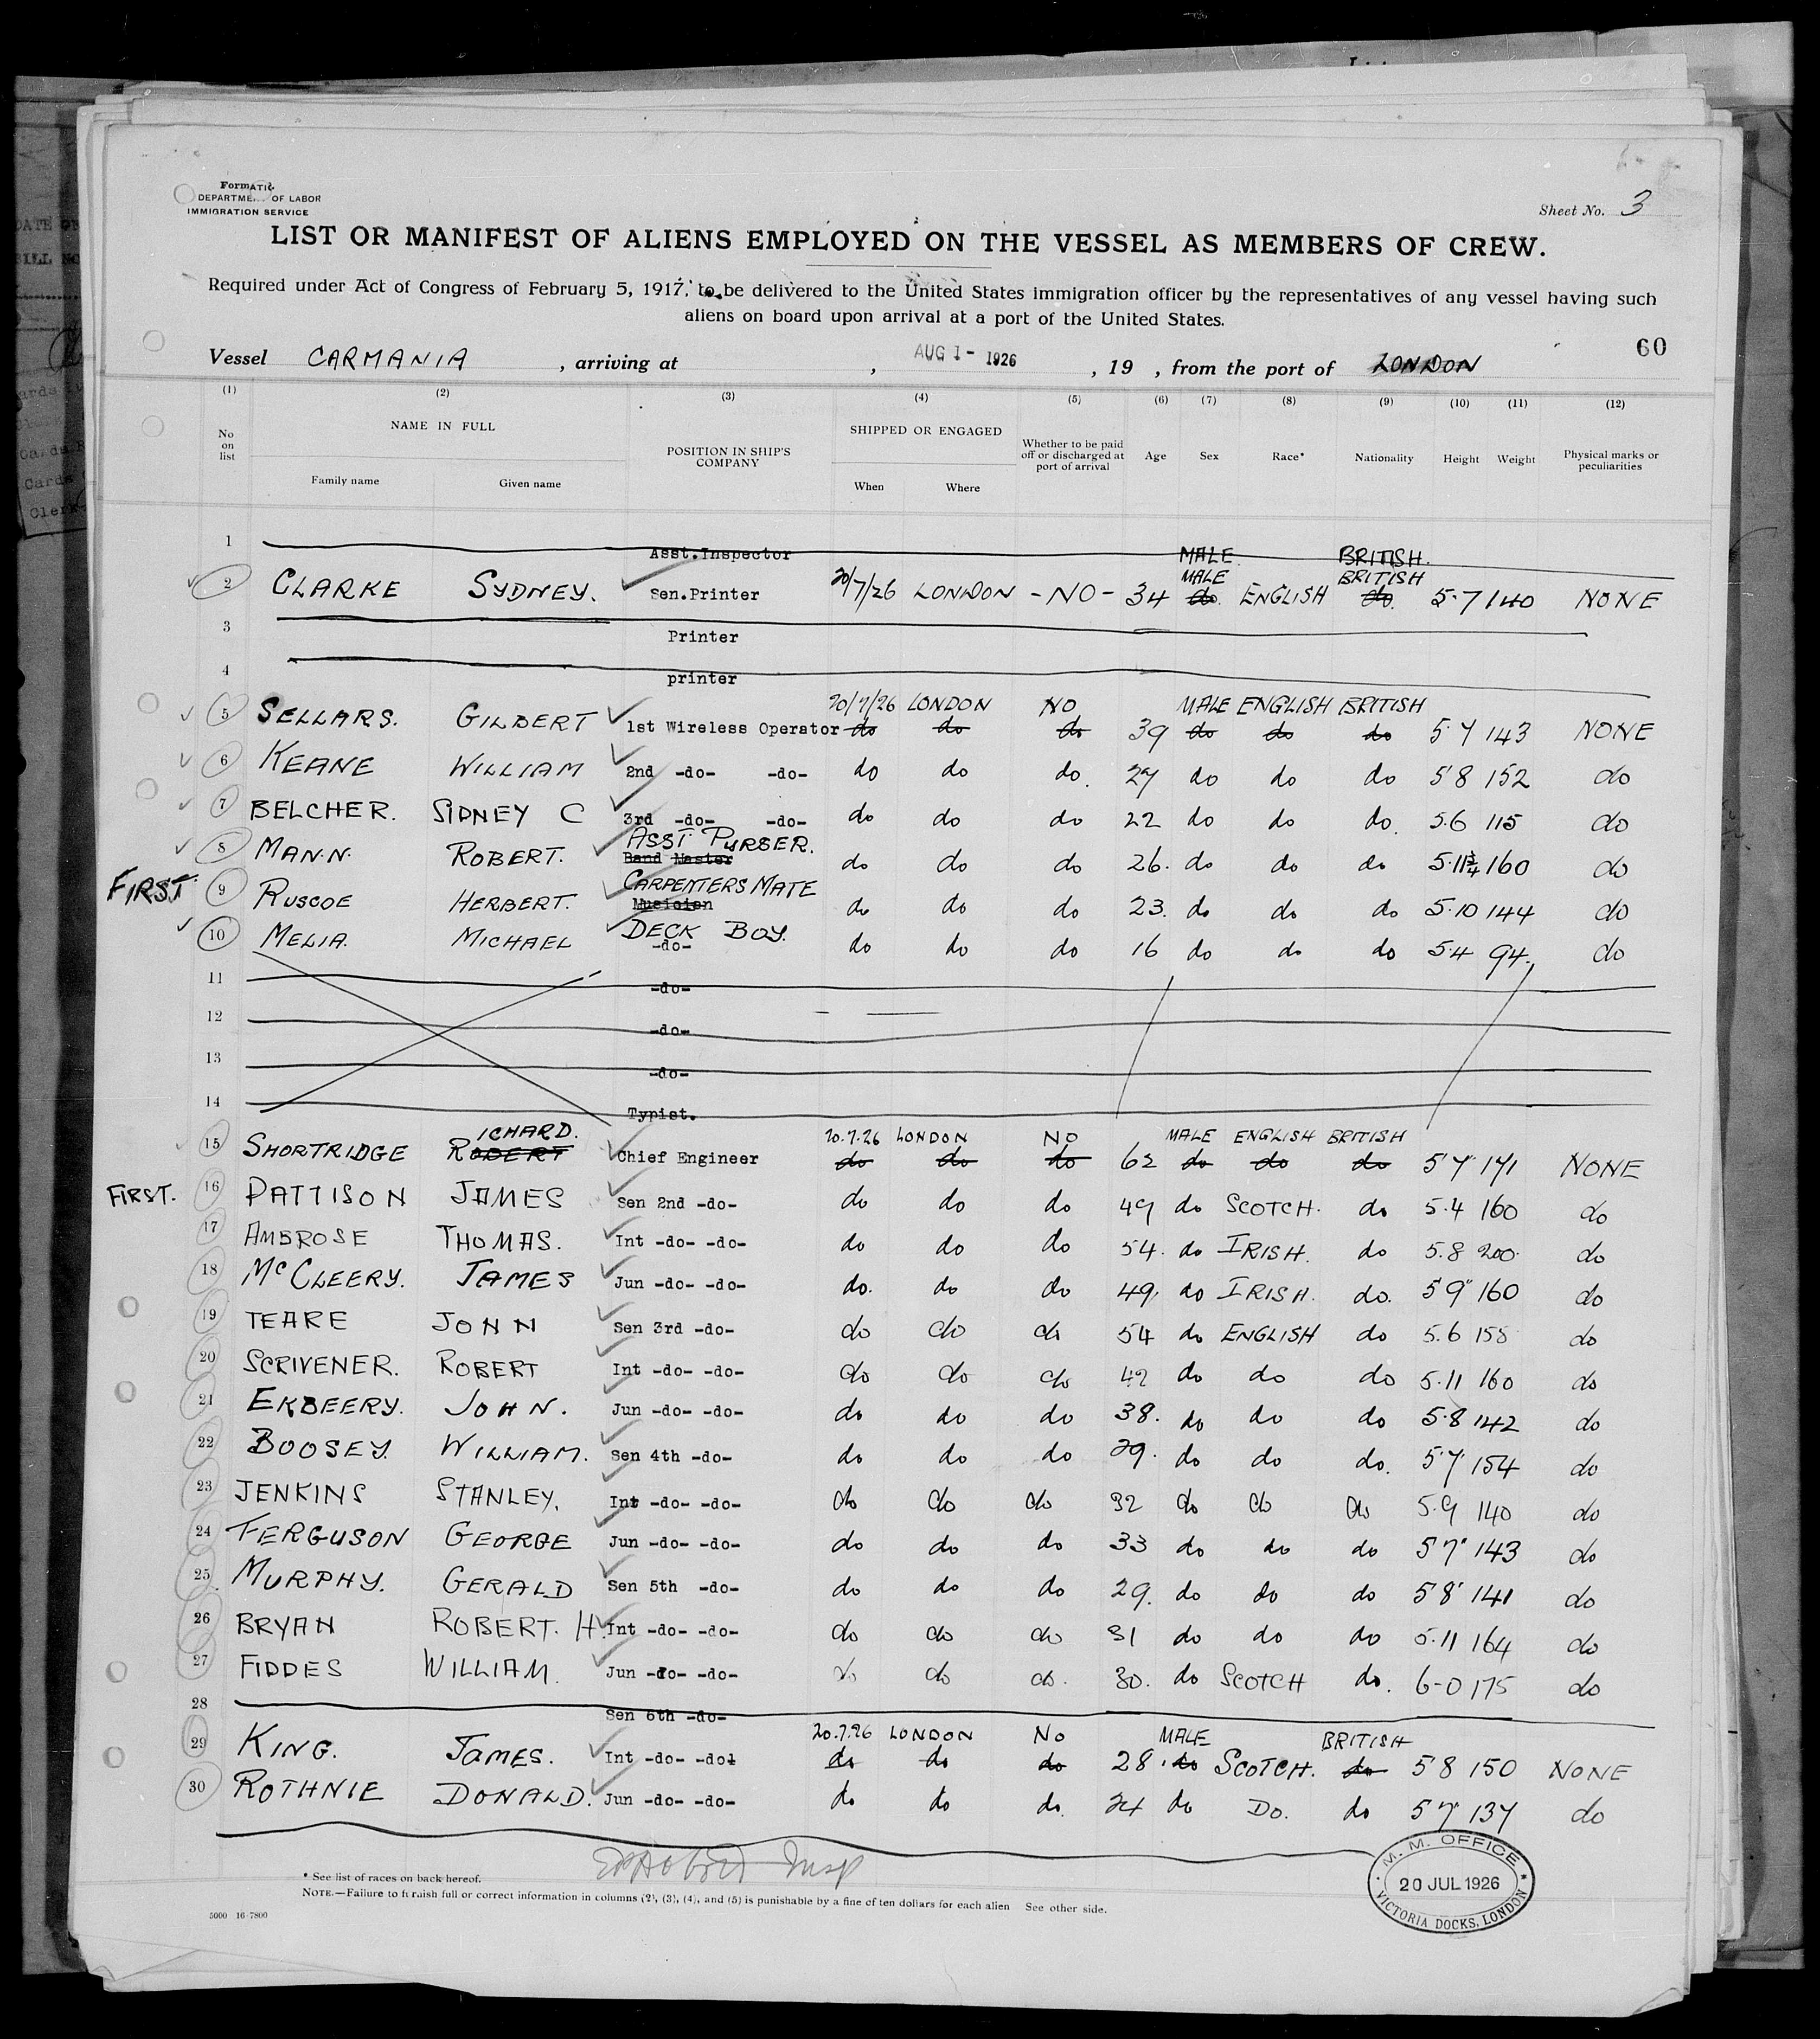 Form
DEPARTMENT OF LABOR
IMMIGRATION SERVICE
Sheet No. 3
LIST OR MANIFEST OF ALIENS EMPLOYED ON THE VESSEL AS MEMBERS OF CREW.
Required under Act of Congress of February 5, 1917, to be delivered to the United States immigration officer by the representatives of any vessel having such
aliens on board upon arrival at a port of the United States.
60
Vessel CARMANIA , arriving at , AUG 1 - 1926 , 19 , from the port of LONDON
(1) (2) (3) (4) (5) (6) (7) (8) (9) (10) (11) (12)
No on list NAME IN FULL Family name Given name POSITION IN SHIP'S COMPANY SHIPPED OR ENGAGED When Where Whether to be paid off or discharged at port of arrival Age Sex Race* Nationality Height Weight Physical marks or peculiarities
1 Asst.Inspector MALE. BRITISH.
MALE BRITISH
2 CLARKE SYDNEY. Sen.Printer 20/7/26 LONDON - NO - 34 do. ENGLISH do. 5.7 140 NONE
3 Printer
4 printer
20/7/26 LONDON NO MALE ENGLISH BRITISH
5 SELLARS. GILBERT 1st Wireless Operator do do do 39 do do do 5 7 143 NONE
6 KEANE WILLIAM 2nd -do- -do- do do do. 27 do do do 5'8 152 do
7 BELCHER. SIDNEY C 3rd -do- -do- do do do 22 do do do. 5.6 115 do
ASST. PURSER.
8 MANN. ROBERT. Band Master do do do 26. do do do 5.11¾ 160 do
CARPENTERS MATE
FIRST. 9 RUSCOE HERBERT. Musician do do do 23. do do do 5.10 144 do
DECK BOY.
10 MELIA. MICHAEL -do- do do do 16 do do do 5.4 94. do
11 -do-
12 -do-
13 -do-
14 Typist.
ICHARD. 20.7.26 LONDON NO MALE ENGLISH BRITISH
15 SHORTRIDGE ROBERT Chief Engineer do do do 62 do do do 5'7" 171 NONE
FIRST. 16 PATTISON JAMES Sen 2nd -do- do do do 49 do SCOTCH. do 5.4 160 do
17 AMBROSE THOMAS. Int -do- -do- do do do 54. do IRISH. do 5.8 200. do
18 McCLEERY. JAMES Jun -do- -do- do. do do 49. do IRISH. do. 5'9" 160 do
19 TEARE JOHN Sen 3rd -do- do do do 54 do ENGLISH do 5.6 158 do
20 SCRIVENER. ROBERT Int -do- -do- do do do 42 do do do 5.11 160 do
21 EKBEERY. JOHN. Jun -do- -do- do do do 38. do do do 5.8 142 do
22 BOOSEY. WILLIAM. Sen 4th -do- do do do 29. do do do. 5'7" 154 do
23 JENKINS STANLEY. Int -do- -do- do do do 32 do do do 5.9 140 do
24 FERGUSON GEORGE Jun -do- -do- do do do 33 do do do 5 7" 143 do
25 MURPHY. GERALD Sen 5th -do- do do do 29. do do do 5'8" 141 do
26 BRYAN ROBERT. H. Int -do- -do- do do do 31 do do do 5.11 164 do
27 FIDDES WILLIAM. Jun -do- -do- do do do. 30. do SCOTCH do. 6-0 175 do
28 Sen 6th -do-
20.7.26 LONDON NO MALE BRITISH
29 KING. JAMES. Int -do- -do- do do do 28. do SCOTCH. do 5'8 150 NONE
30 ROTHNIE DONALD. Jun -do- -do- do do do. 24 do DO. do 5 7" 137 do
Insp
* See list of races on back hereof.
NOTE.—Failure to furnish full or correct information in columns (2), (3), (4), and (5) is punishable by a fine of ten dollars for each alien See other side.
5000 16-7800
M. M. OFFICE
20 JUL 1926
VICTORIA DOCKS, LONDON